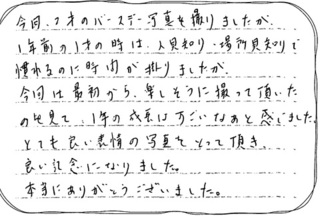 今回、2才のバースデー写真を撮りましたが、
1年前の1才の時は、人見知り・場所見知りで
慣れるのに時間が掛りましたが、
今回は最初から、楽しそうに撮って頂いた
のを見て、1年の成長はすごいなあと感じました。
とても良い表情の写真をとって頂き、
良い記念になりました。
本当にありがとうございました。